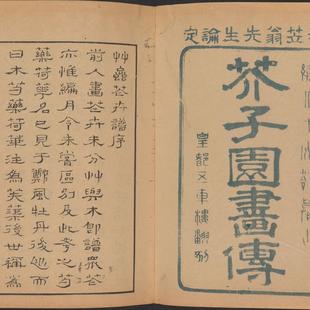 笠翁先生論定
芥子園畫傳
皇都五車樓翻刻
艸蟲花卉譜序
前人畫花卉未分艸與木卽譜眾花
亦惟編月令未嘗區別及此考之芍
藥荷華名已見于鄭風牡丹後出而
曰木芍藥荷華注為芙蕖後世稱為